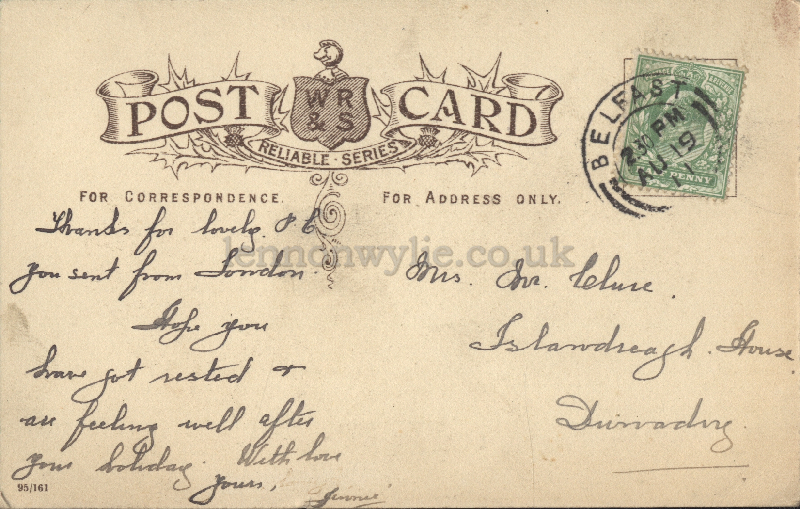 POST CARD
WR
& S
RELIABLE · SERIES
FOR CORRESPONDENCE.
FOR ADDRESS ONLY.
BELFAST
PM
AU 19
PENNY
Thanks for lovely P.C
you sent from London.
Hope you
have got rested &
are feeling well after
your holiday. With love
yours,
Jennie
Mrs. Mc. Clure.
Islandreagh. House
Dunadry
95/161
lennonwylie.co.uk